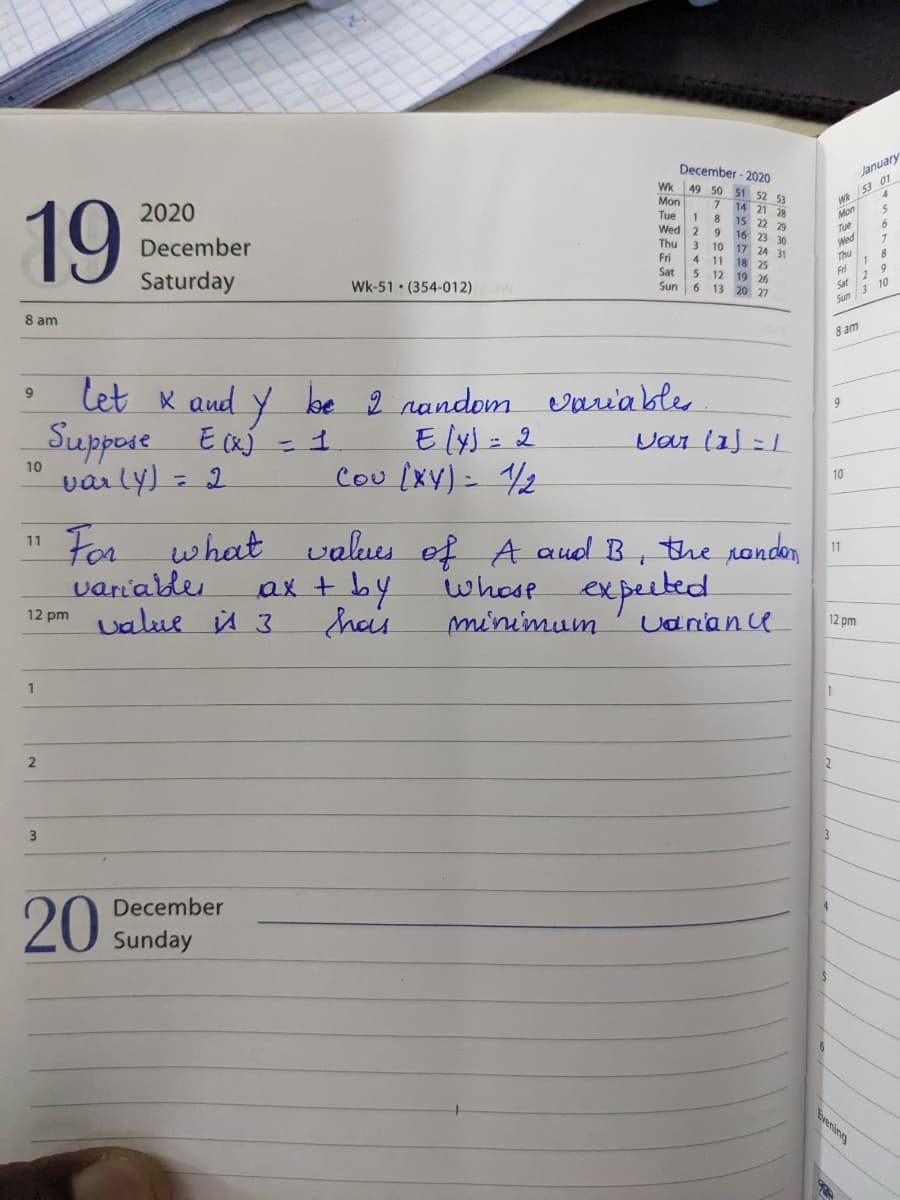 December - 2020
Wk 49 50 51 52 53
Mon 7 14 21 28
Tue 1 8 15 22 29
Wed 2 9 16 23 30
Thu 3 10 17 24 31
Fri 4 11 18 25
Sat 5 12 19 26
Sun 6 13 20 27
19
2020
December
Saturday
Wk-51 • (354-012)
8 am
9 Let x and y be 2 random variables.
Suppose E(x) = 1 E(y) = 2 var(x) = 1
10 var(y) = 2 Cov(XY) = 1/2
11 For what values of A and B, the random
variables ax + by whose expected
12 pm value is 3 has minimum variance
1
2
3
20
December
Sunday
January
Wk 53 01
Mon 4
Tue 5
Wed 6
Thu 7
Fri 1 8
Sat 2 9
Sun 3 10
8 am
9
10
11
12 pm
1
2
3
4
5
6
Evening